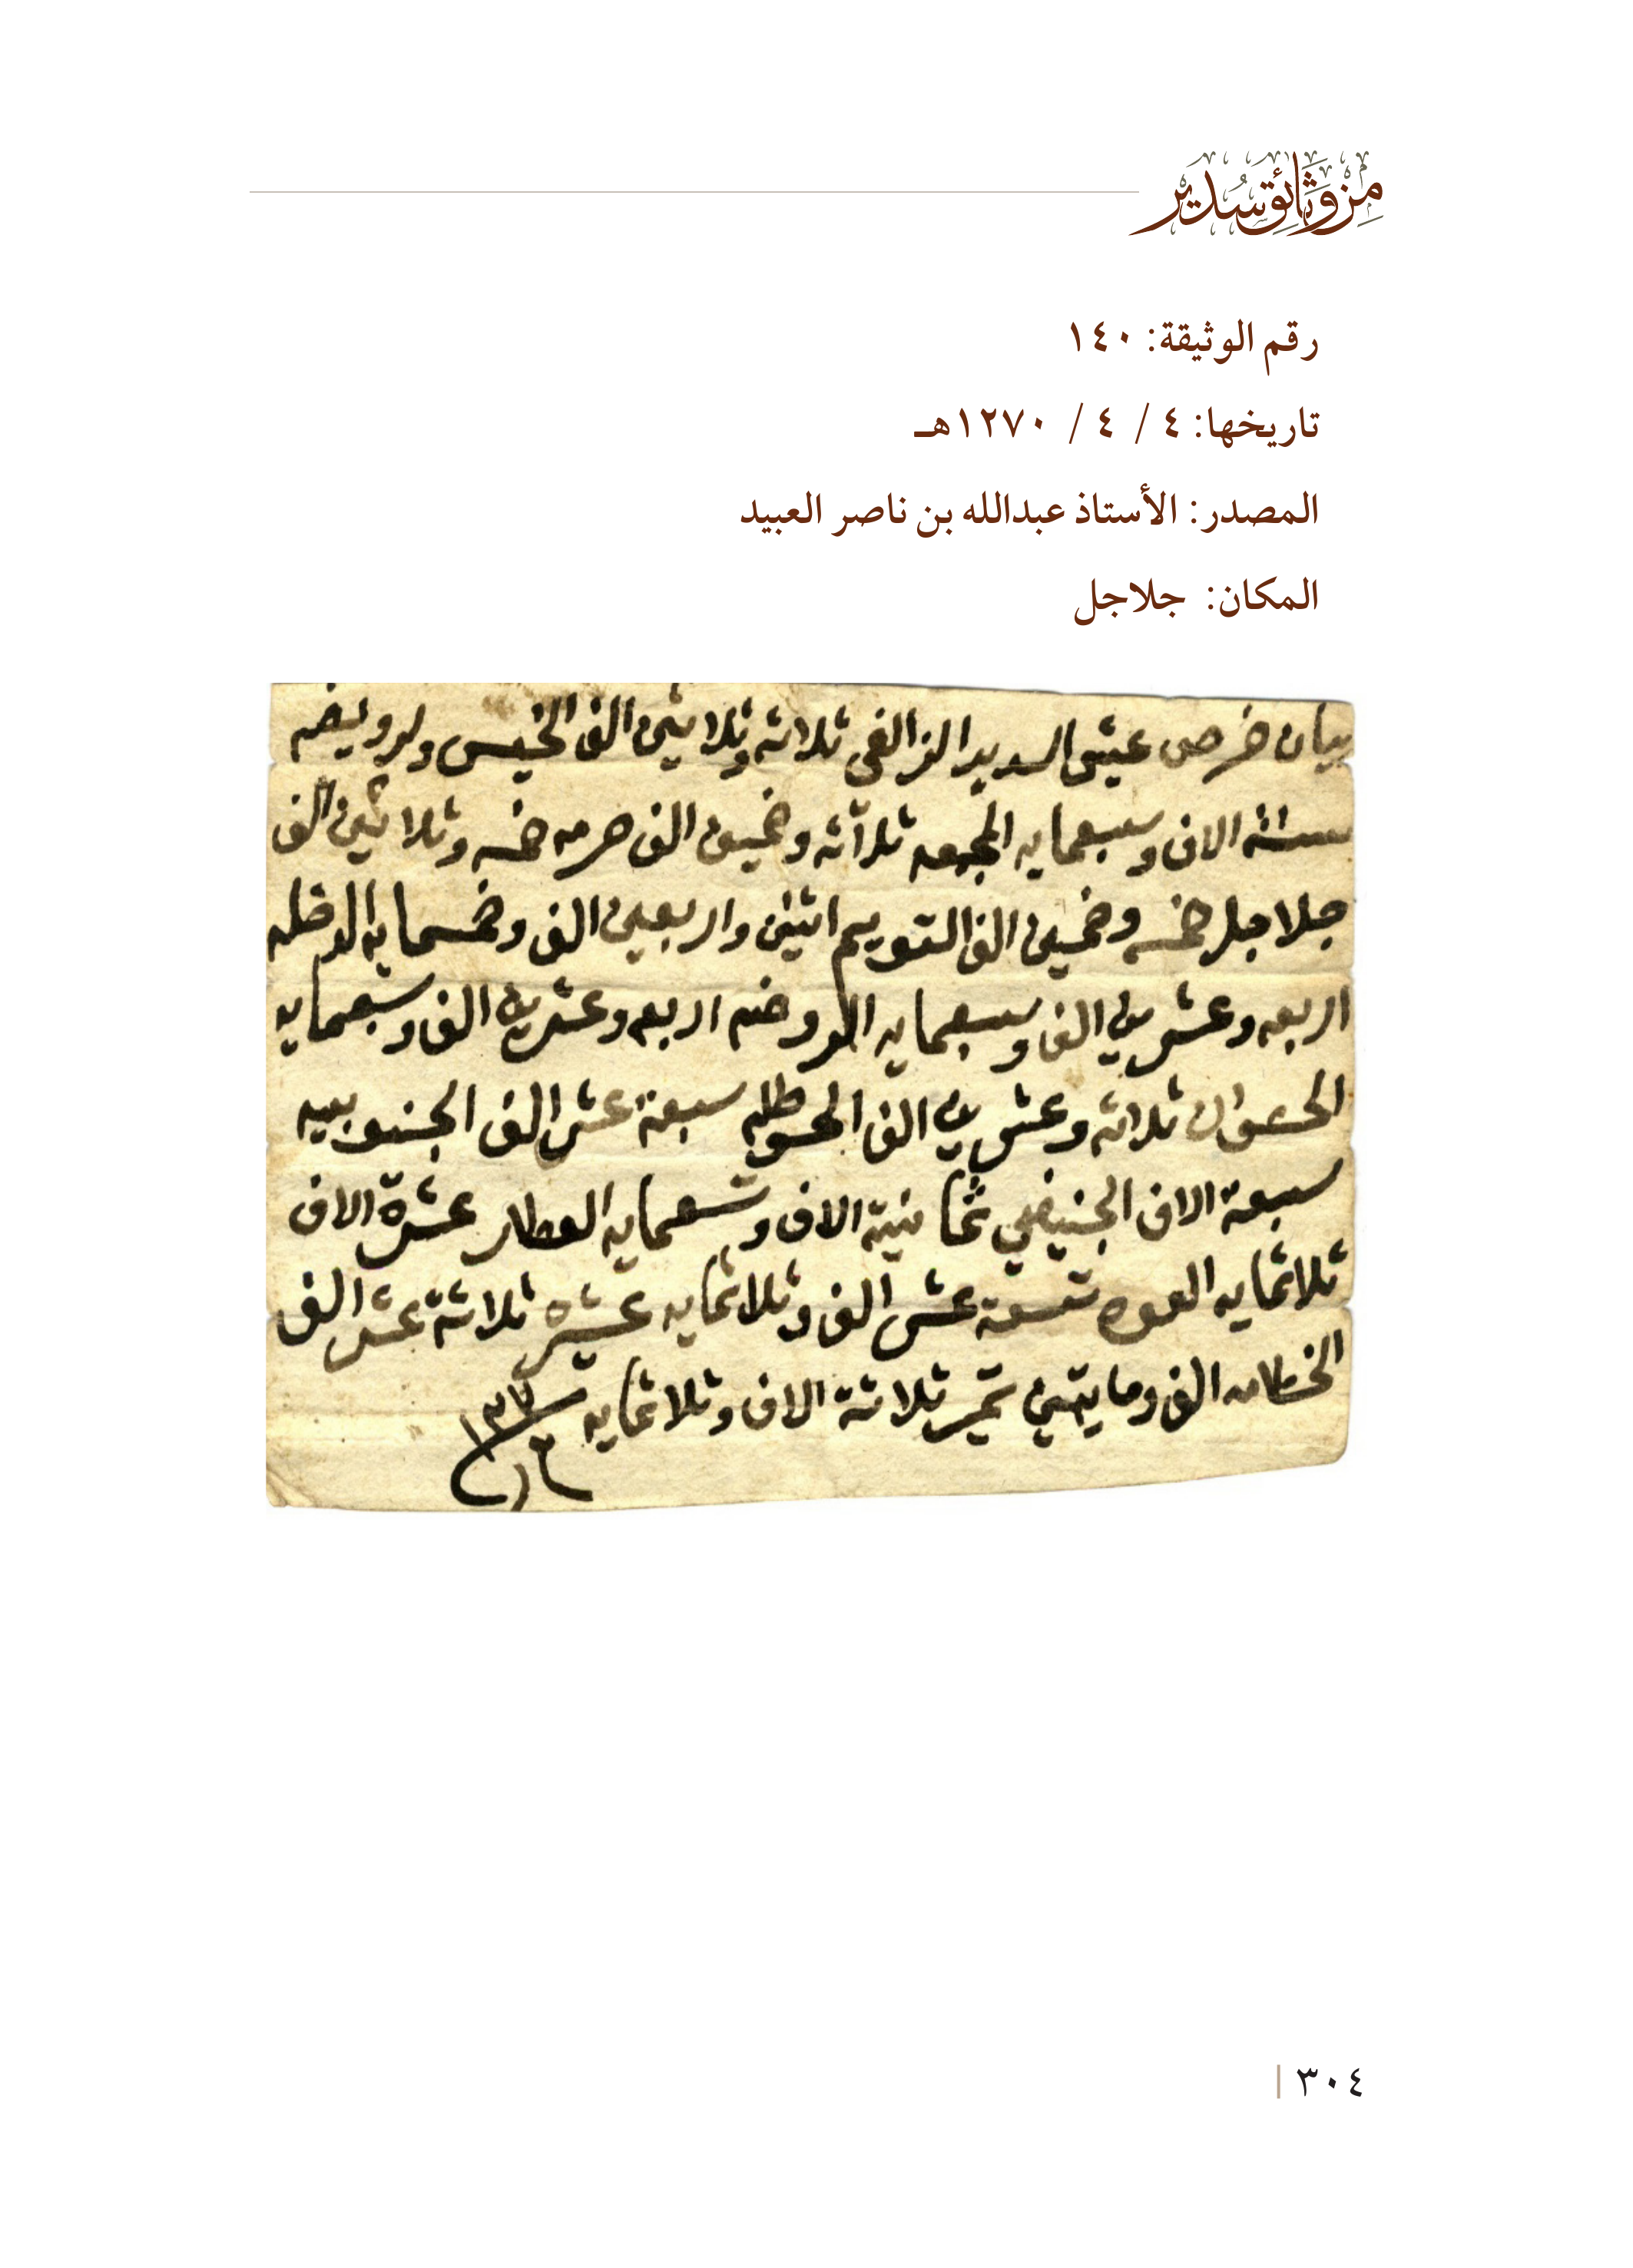 من وثائق سدير
رقم الوثيقة: ١٤٠
تاريخها: ٤ / ٤ / ١٢٧٠هـ
المصدر: الأستاذ عبدالله بن ناصر العبيد
المكان: جلاجل
بيان خرص عيش السدير الزلفي ثلاثه وثلاثين الف الخيس والرويضه
ستة الاف وسبعمايه المجمعه ثلاثه وخمسين الف حرمه خمسه وثلاثين الف
جلاجل خمسه وخمسين الف التويم اثنين واربعين الف وخمسمايه الداخله
اربعه وعشرين الف وسبعمايه الروضه اربعه وعشرين الف وسبعمايه
الحصون ثلاثه وعشرين الف الحوطه سبعة عشر الف الجنوبيه
سبعة الاف الجنيفي ثمانية الاف وتسعمايه العطار عشرة الاف
ثلاثمايه العوده تسعة عشر الف وثلاثمايه عشيره ثلاثة عشر الف
الخطامه الف ومايتين تمير ثلاثة الاف وثلاثمايه
٣٠٤